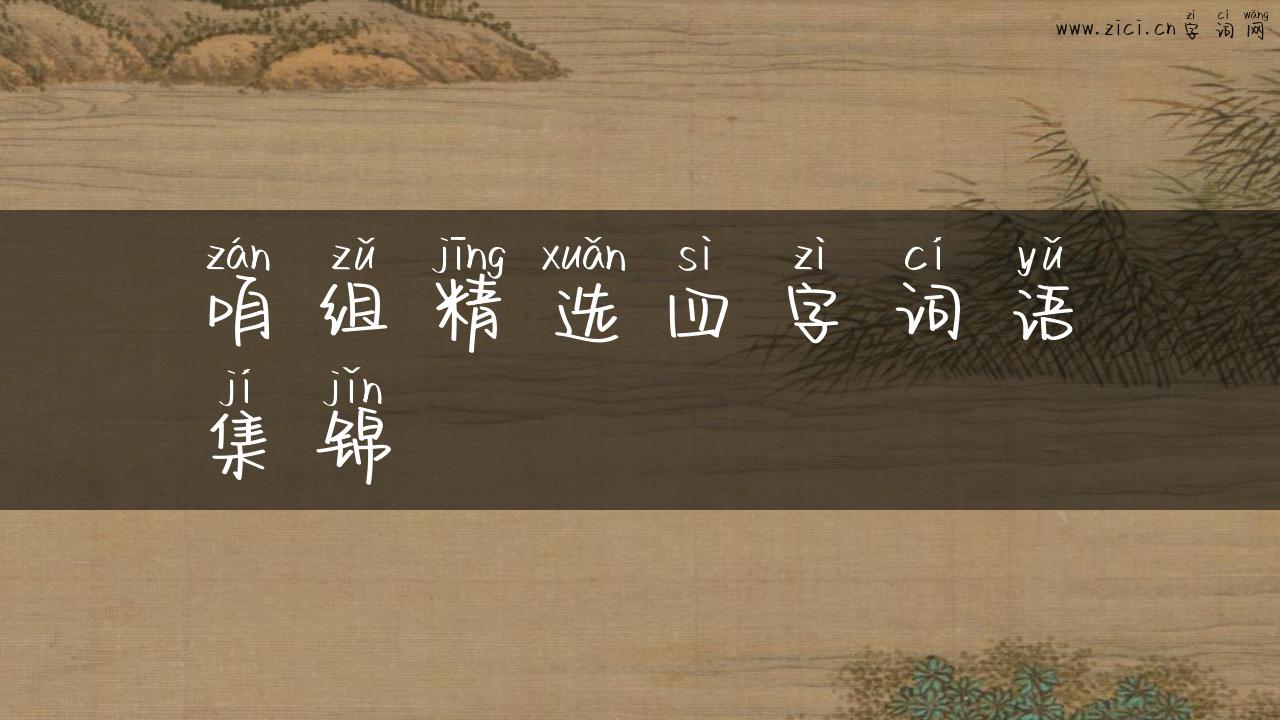 zì cí wǎng
www.zici.cn字词网
zán zǔ jīng xuǎn sì zì cí yǔ
咱组精选四字词语
jí jǐn
集锦